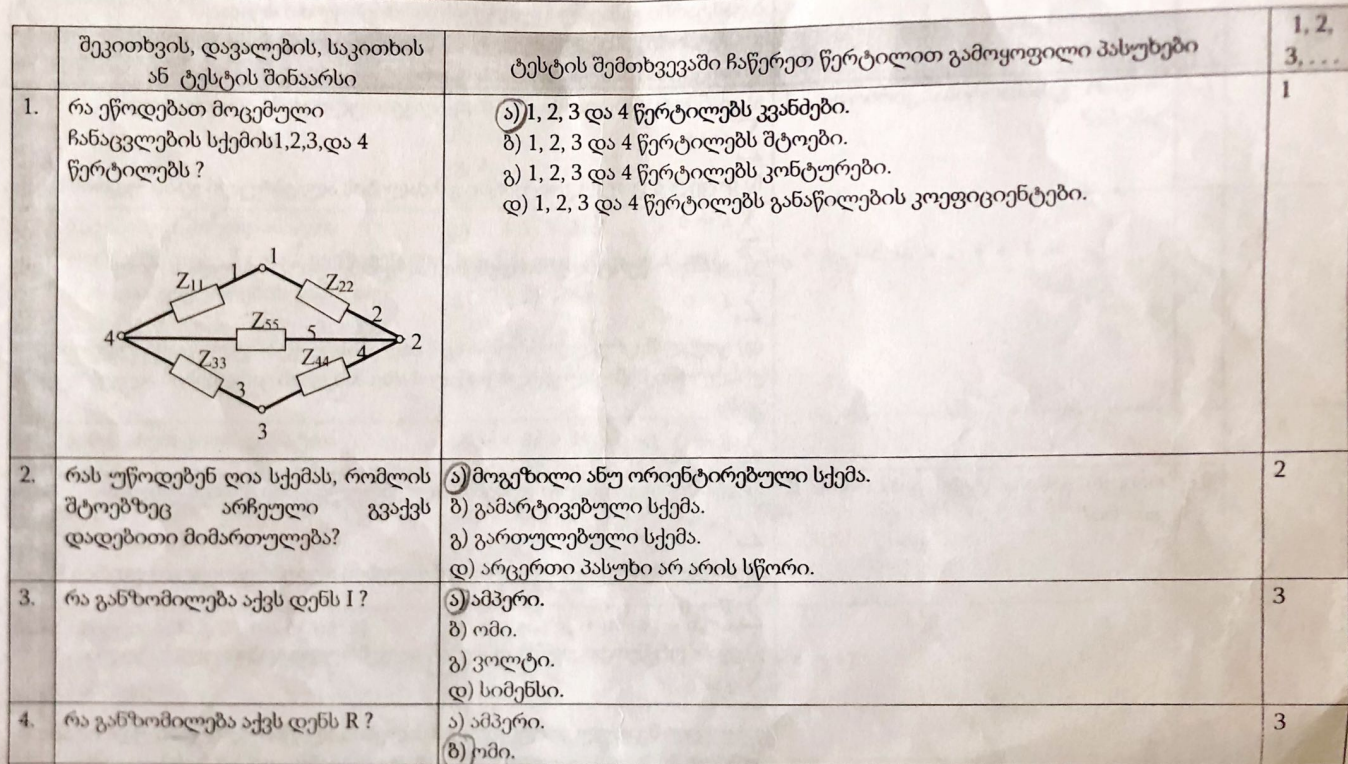 შეკითხვის, დავალების, საკითხის
ან ტესტის შინაარსი
ტესტის შემთხვევაში ჩაწერეთ წერტილით გამოყოფილი პასუხები
1, 2,
3, . . .
1.
რა ეწოდებათ მოცემული
ჩანაცვლების სქემის1,2,3,და 4
წერტილებს ?
ა) 1, 2, 3 და 4 წერტილებს კვანძები.
ბ) 1, 2, 3 და 4 წერტილებს შტოები.
გ) 1, 2, 3 და 4 წერტილებს კონტურები.
დ) 1, 2, 3 და 4 წერტილებს განაწილების კოეფიციენტები.
1
1
Z11
1
Z22
2
4
Z55
5
2
Z33
3
Z44
4
3
2.
რას უწოდებენ ღია სქემას, რომლის
შტოებზეც არჩეული გვაქვს
დადებითი მიმართულება?
ა) მოგეზილი ანუ ორიენტირებული სქემა.
ბ) გამარტივებული სქემა.
გ) გართულებული სქემა.
დ) არცერთი პასუხი არ არის სწორი.
2
3.
რა განზომილება აქვს დენს I ?
ა) ამპერი.
ბ) ომი.
გ) ვოლტი.
დ) სიმენსი.
3
4.
რა განზომილება აქვს დენს R ?
ა) ამპერი.
ბ) ომი.
3